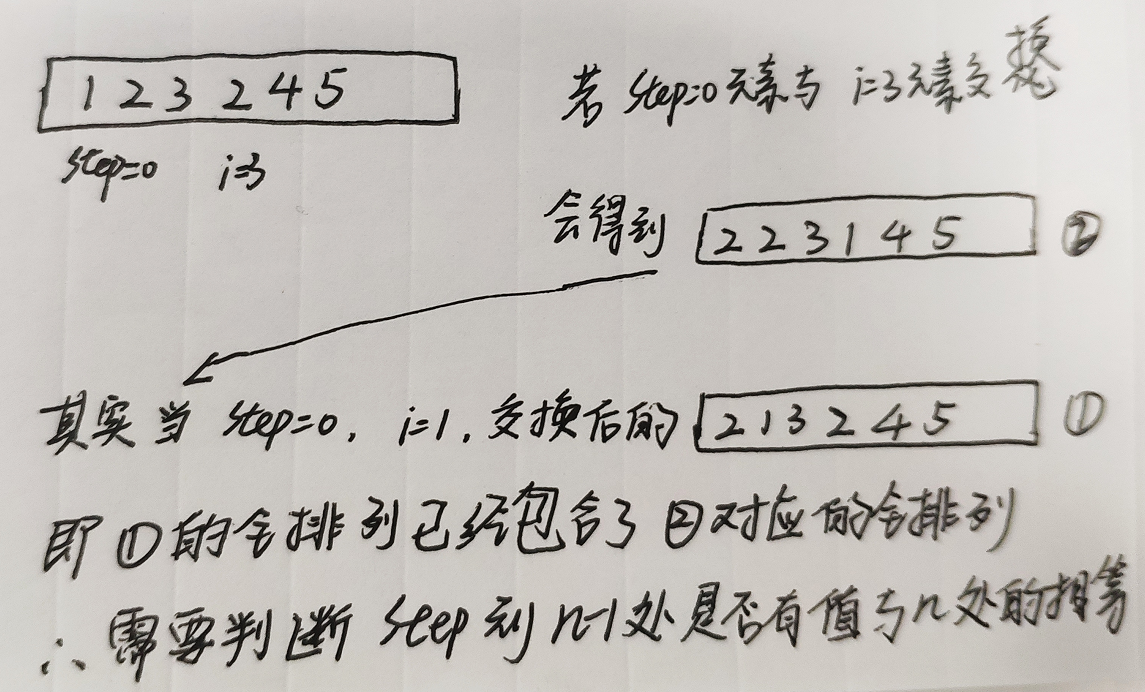 1 2 3 2 4 5 若 step=0元素与 i=3元素交换
step=0 i=3
会得到 2 2 3 1 4 5 ②
其实当 step=0, i=1, 交换后的 2 1 3 2 4 5 ①
即①的全排列已经包含了②对应的全排列
∴ 需要判断 step到n-1处是否有值与n处的相等